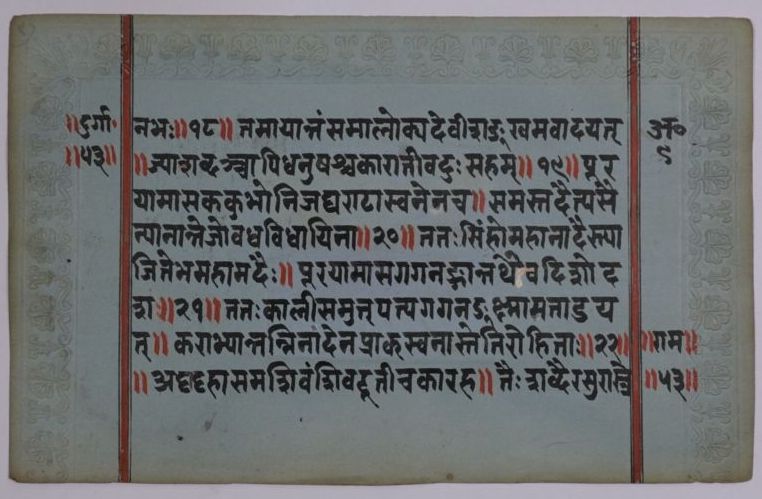 ॥दुर्गा॰ नभः॥१८॥ तमायान्तंसमालोक्यदेवीशङ्खमवादयत् अ॰
॥५३॥ ॥ज्याशब्दञ्चापिधनुषश्चकारातीवदुःसहम्॥१९॥पूर ९
यामासककुभोनिजघण्टास्वनेनच॥ समस्तदैत्यसै
न्यानान्तेजोवधविधायिना॥२०॥ततःसिंहोमहानादैस्त्या
जितेभमहामदैः॥ पूरयामासगगनङ्गान्तथैवदिशोद
श॥२१॥ ततःकालीसमुत्पत्यगगनङ्क्ष्मामताडय
त्॥ कराभ्यान्तन्निनादेनप्राक्स्वनास्तेतिरोहिताः॥२२॥ ॥राम॥
॥अट्टट्टहासमशिवंशिवदूतीचकारह॥ तैःशब्दैरसुरास्त्रे ॥५३॥